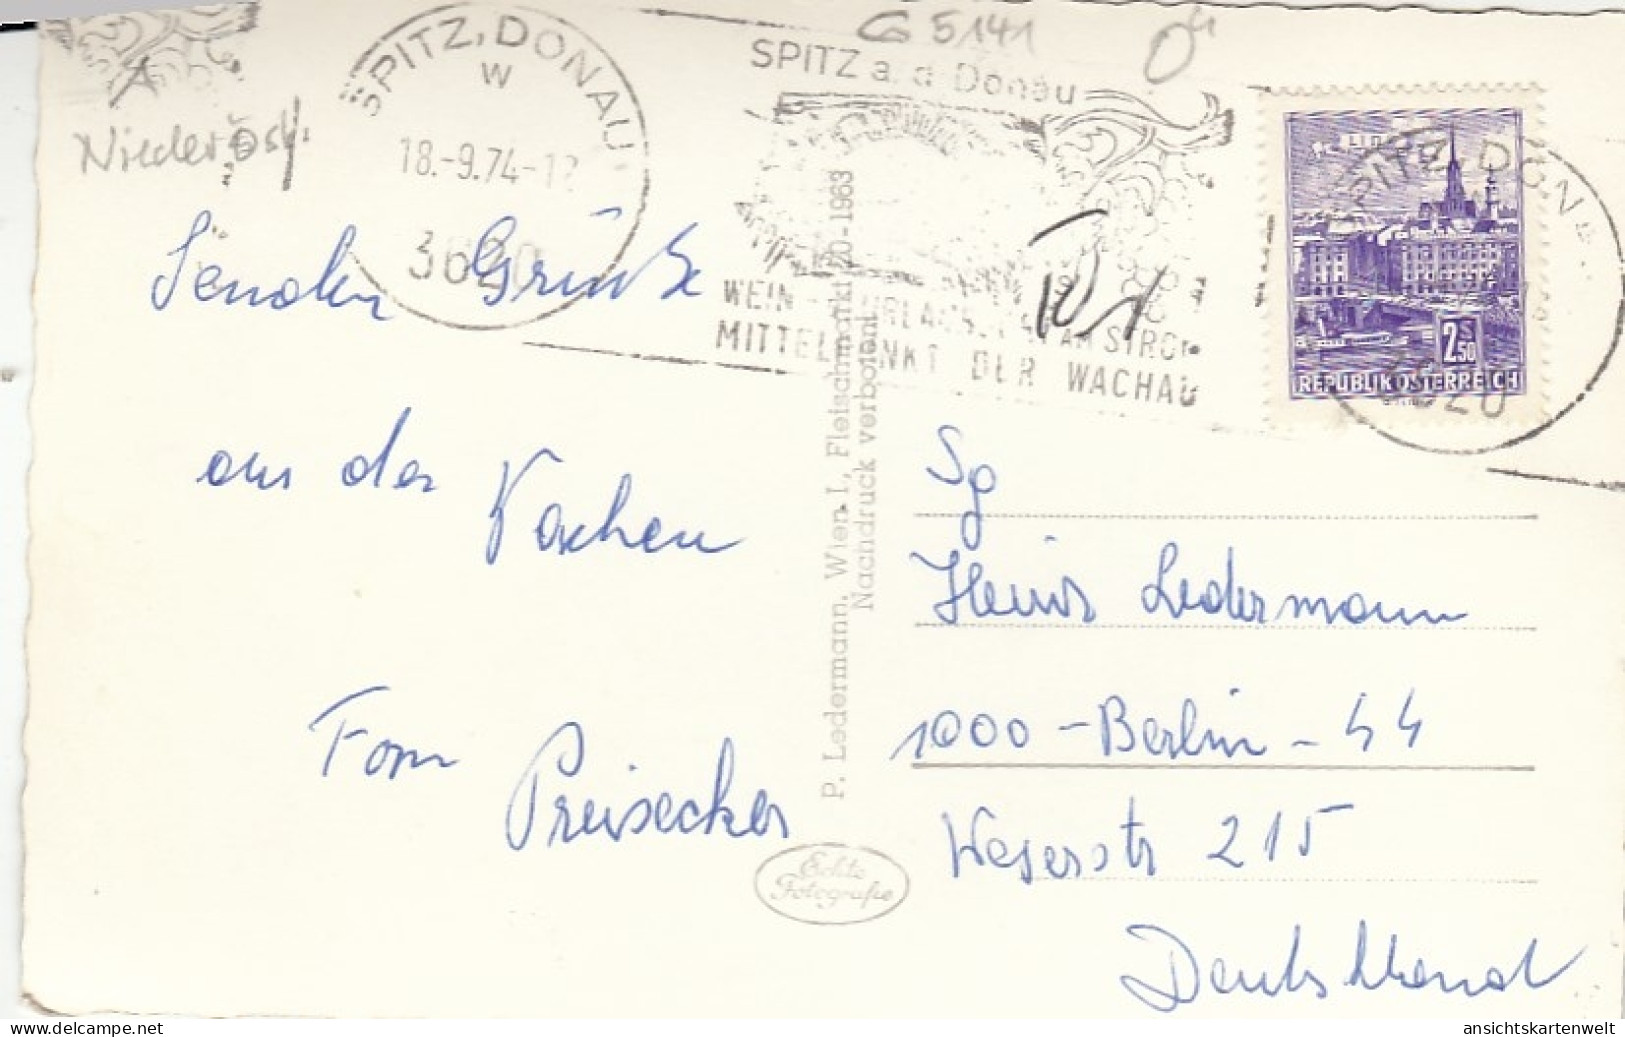 G 5141
Niederöst.
SPITZ, DONAU
W
18.-9.74-12
3620
SPITZ a. d. Donau
MITTELPUNKT DER WACHAU
LINZ
2.50
S
REPUBLIK ÖSTERREICH
SPITZ, DONAU
3620
Senden Grüße
aus der Wachau
Fam
Preisecker
P. Ledermann, Wien I., Fleischmarkt 20-1963
Nachdruck verboten!
Echte
Fotografie
Sg
Heinz Ledermann
1000 - Berlin - 44
Weserstr 215
Deutschland
delcampe.net
ansichtskartenwelt